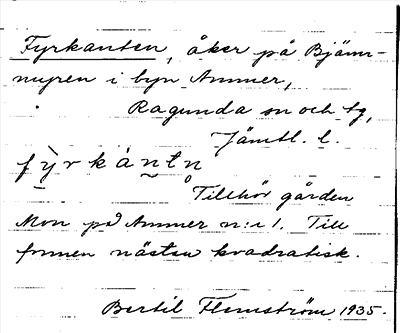 Fyrkanten, åker på Bjärn-
myren i byn Ammer,
Ragunda sn och tg,
Jämtl. l.
fỳrkàntn̥
Tillhör gården
Mon på Ammer n:i 1. Till
formen nästan kvadratisk.
Bertil Flemström 1935.